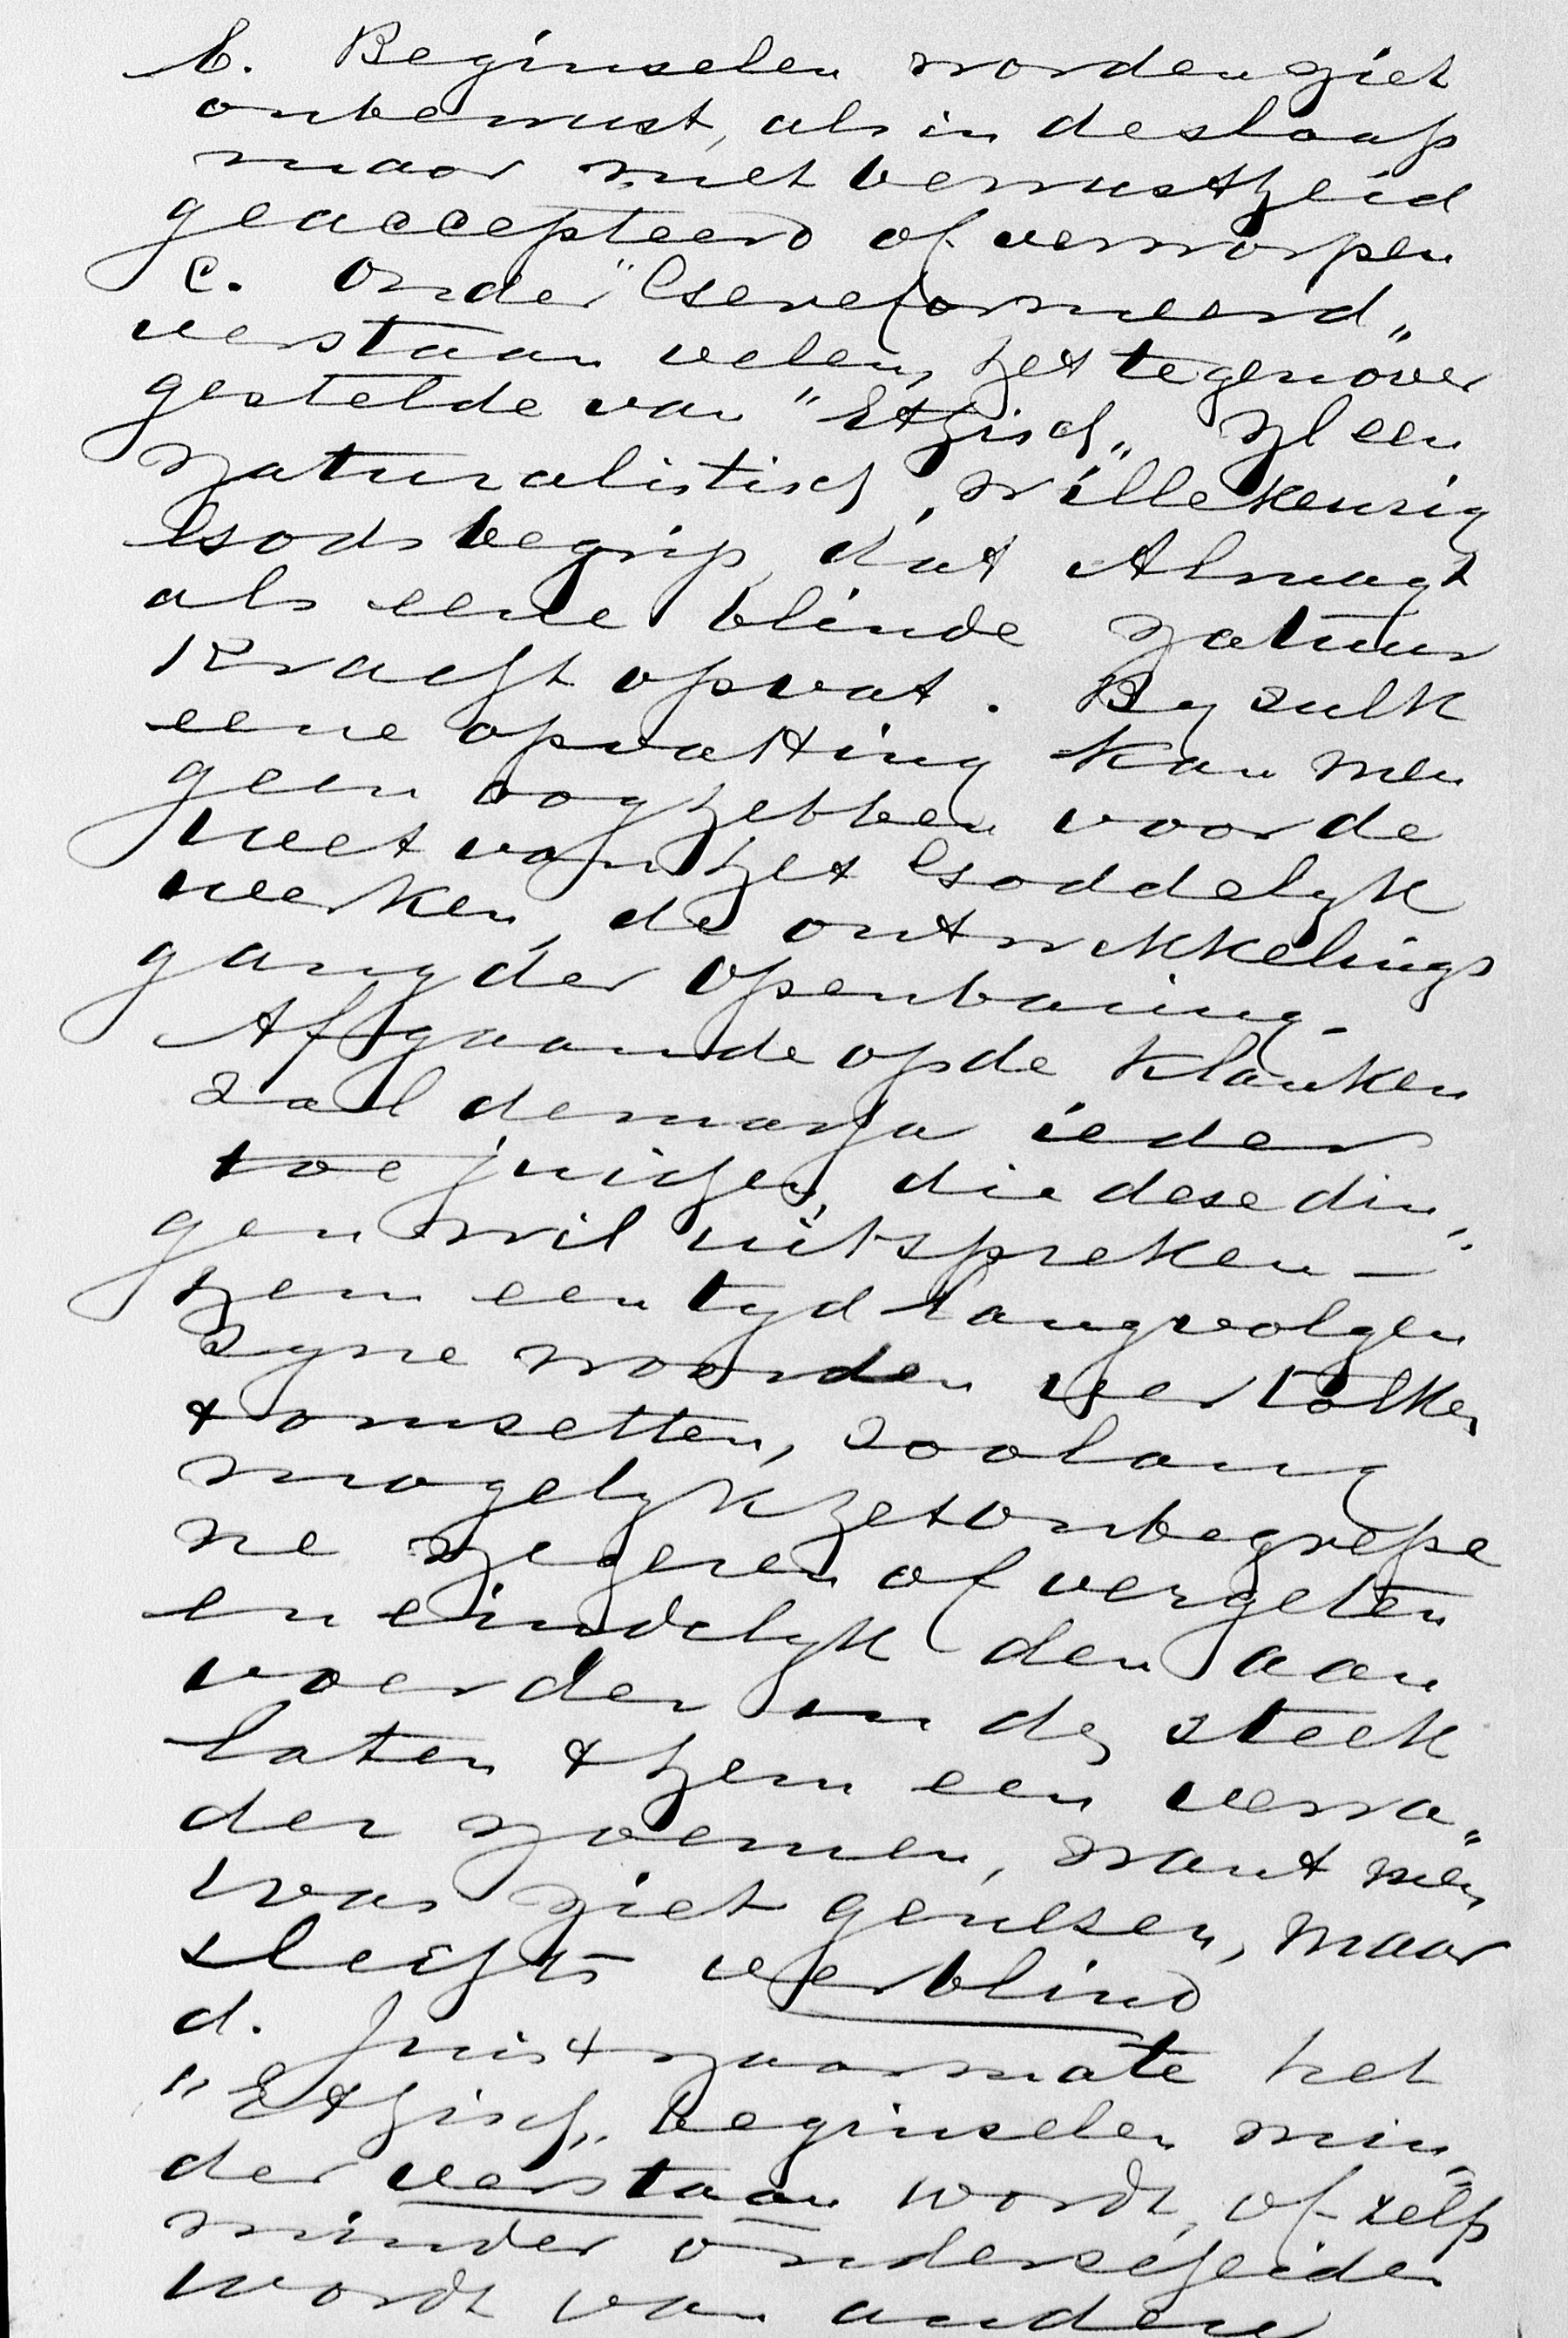 b. Beginselen worden niet
onbewust, als in de slaap
maar met bewustheid
geaccepteerd of verworpen
c. Onder "Gereformeerd„
verstaan velen, het tegenover
gestelde van "Ethisch„ nl een
naturalistisch, willekeurig
Godsbegrip, dat Almagt
als eene blinde natuur
kracht opvat. By zulk
eene opvatting kan men
geen oog hebben voor de
wet van het Goddelyk
werken, de ontwikkelings
gang der openbaring.
Afgaande op de klanken
zal de massa ieder
toejuichen, die deze din„
gen wil uitspreken —
hem een tyd lang volgen
zyne woorden vertolken
& omzetten, zoolang
mogelyk het onbegrepe
ne negeren of vergeten
en eindelyk den aan
voerder in de steek
laten & hem een verra„
der noemen, want men
was niet genezen, maar
slechts verblind
d. Juist naarmate het
"Ethisch„ beginselen min„
der verstaan wordt, of zelfs
minder onderscheiden
wordt van andere